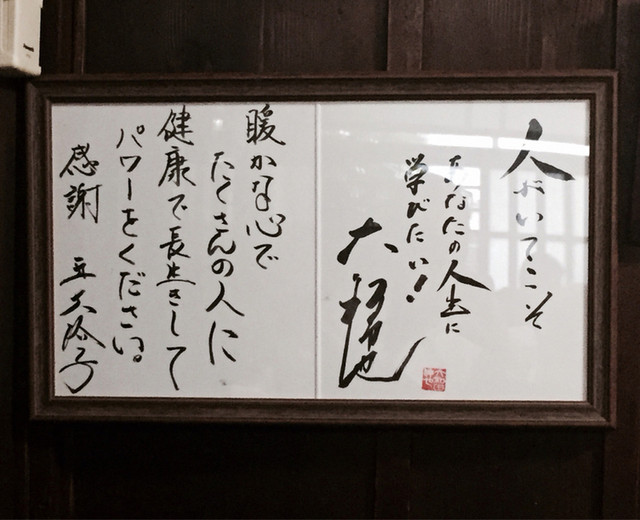 人おいてこそ
あなたの人生に
学びたい!
大
暖かな心で
たくさんの人に
健康で長生きして
パワーをください。
感謝 五大路子